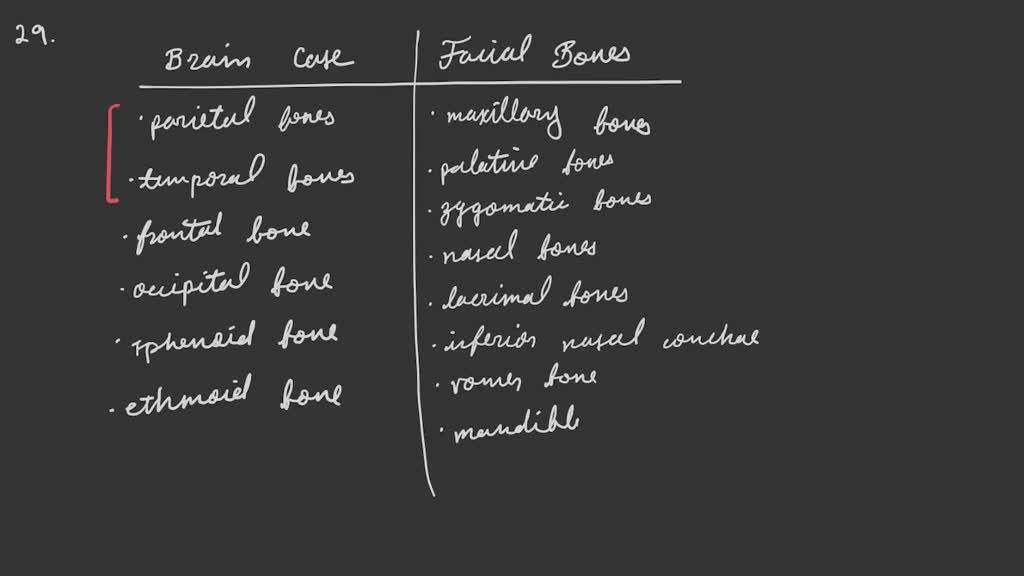 29.
Brain Case
Facial Bones
· parietal bones
· temporal bones
· frontal bone
· occipital bone
· sphenoid bone
· ethmoid bone
· maxillary bones
· palatine bones
· zygomatic bones
· nasal bones
· lacrimal bones
· inferior nasal conchae
· vomer bone
· mandible